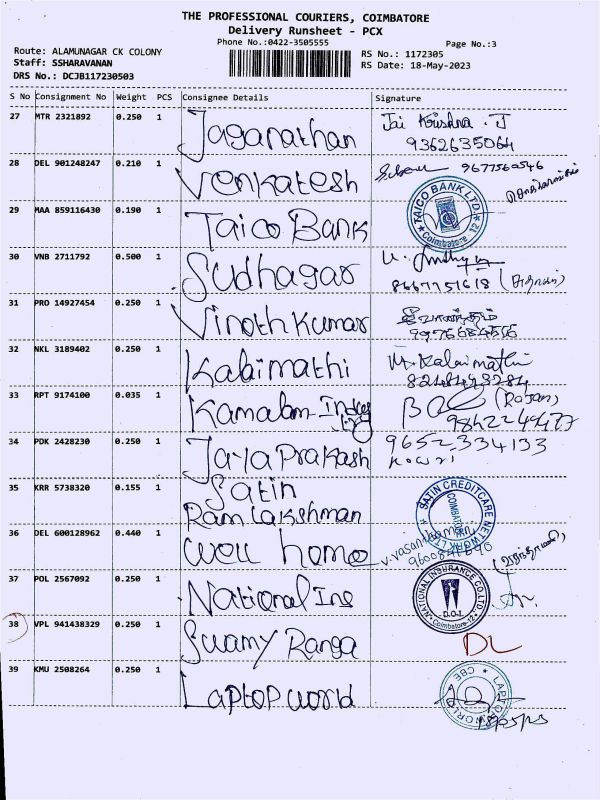 THE PROFESSIONAL COURIERS, COIMBATORE
Delivery Runsheet - PCX
Phone No.:0422-3505555
Page No.:3
Route: ALAMUNAGAR CK COLONY
RS No.: 1172305
Staff: SSHARAVANAN
RS Date: 18-May-2023
DRS No.: DCJB117230503
S No Consignment No Weight PCS Consignee Details Signature
27 MTR 2321892 0.250 1 Jaganathan Jai Krishna . J
9362635064
28 DEL 901248247 0.210 1 Venkatesh 9677560546
29 MAA 859116430 0.190 1 Taico Bank TAICO BANK LTD. Coimbatore-12
30 VNB 2711792 0.500 1 Sudhagar
8667751618
31 PRO 14927454 0.250 1 Vinoth Kumar
32 NKL 3189402 0.250 1 Kalaimathi M. Kalaimathi
8248493284
33 RPT 9174100 0.035 1 Kamalam (Rajan)
9842249477
34 PDK 2428230 0.250 1 Jaya Prakash 9652334133
35 KRR 5738320 0.155 1 Satin
Ram Lakshman SATIN CREDITCARE NETWORK LTD COIMBATORE
36 DEL 600128962 0.440 1 well home
37 POL 2567092 0.250 1 National Ins NATIONAL INSURANCE CO.LTD D.O.I. Coimbatore-12
38 VPL 941438329 0.250 1 Swamy Ranga DL
39 KMU 2508264 0.250 1 Laptop world LAPTOP WORLD CBE